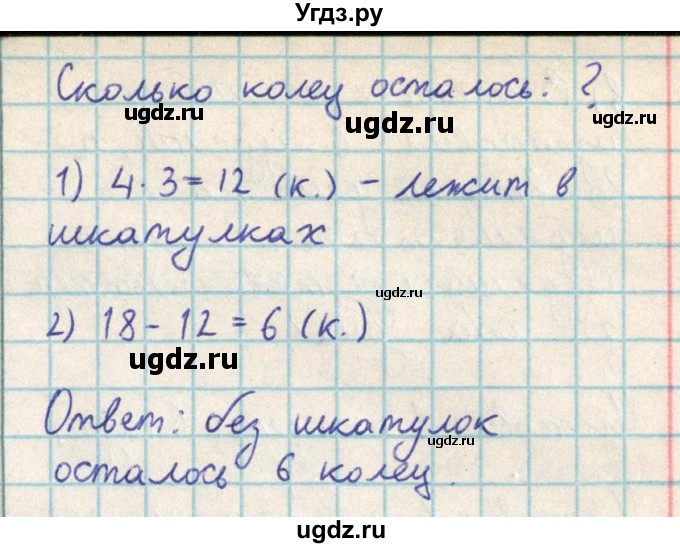 Угдз.ру
Сколько колец осталось: ?
ugdz.ru
ugdz.ru
ugdz.ru
1) 4·3=12 (к.) – лежит в
шкатулках
ugdz.ru
ugdz.ru
2) 18-12=6 (к.)
ugdz.ru
Ответ: без шкатулок
ugdz.ru
осталось 6 колец.
ugdz.ru
ugdz.ru